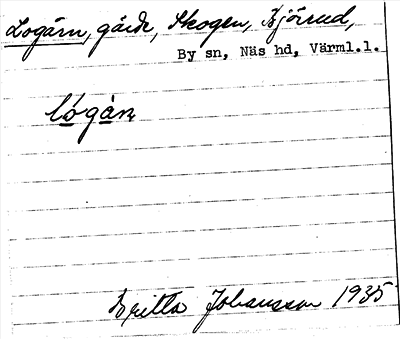 Logårn, gärde, Skogen, Björrud,
By sn, Näs hd, Värml.l.
lógàn
Britta Johansson 1935